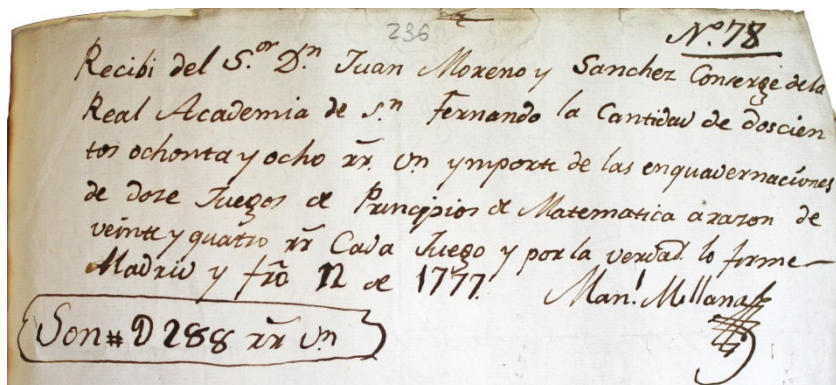 236
Nº. 78
Recibi del S.or D.n Juan Moreno y Sanchez Conserge dela
Real Academia de S.n Fernando la Cantidad de doscien
tos ochenta y ocho rr. vn ymporte de las enquadernaciones
de doze Juegos de Principios de Matematica arazon de
veinte y quatro rr Cada Juego y por la verdad lo firme
Madrid y fro 12 de 1777.
Man.l Millana
Son # D 288 rr vn